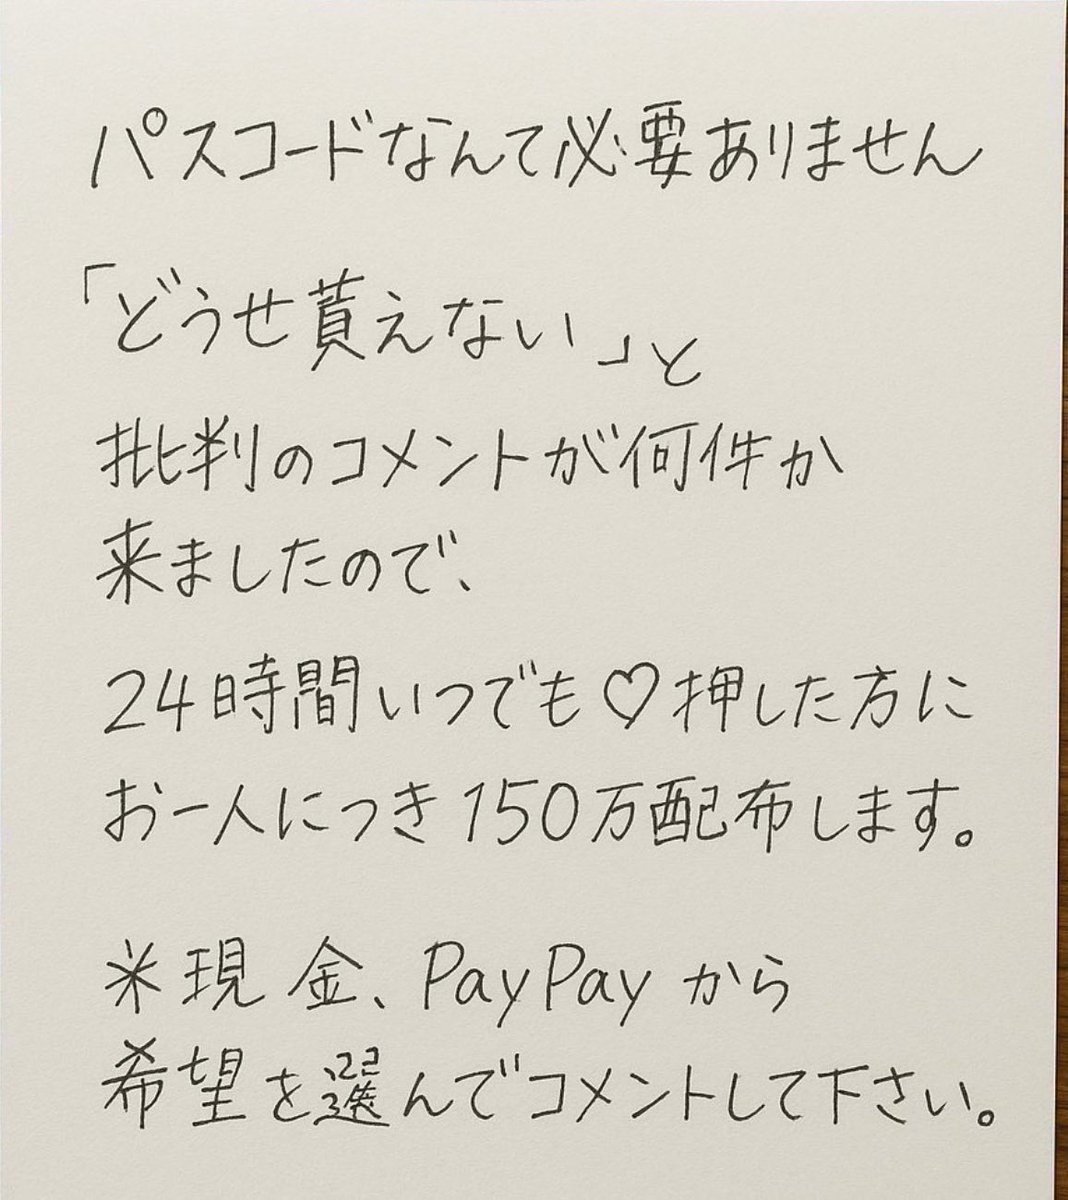 パスコードなんて必要ありません
「どうせ貰えない」と
批判のコメントが何件か
来ましたので、
24時間いつでも♡押した方に
お一人につき150万配布します。
※現金、PayPayから
希望を選んでコメントして下さい。